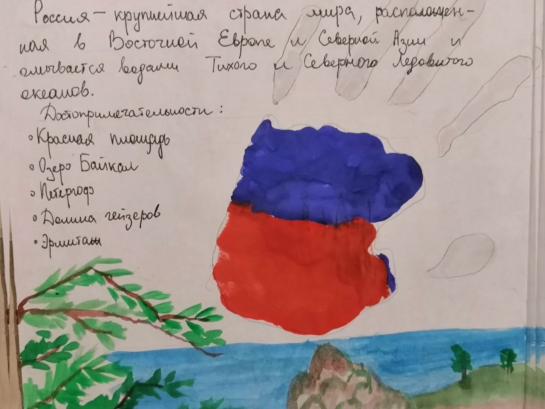 Россия — крупнейшая страна мира, расположен-
ная в Восточной Европе и Северной Азии и
омывается водами Тихого и Северного Ледовитого
океанов.
Достопримечательности:
• Красная площадь
• Озеро Байкал
• Петергоф
• Долина гейзеров
• Эрмитаж